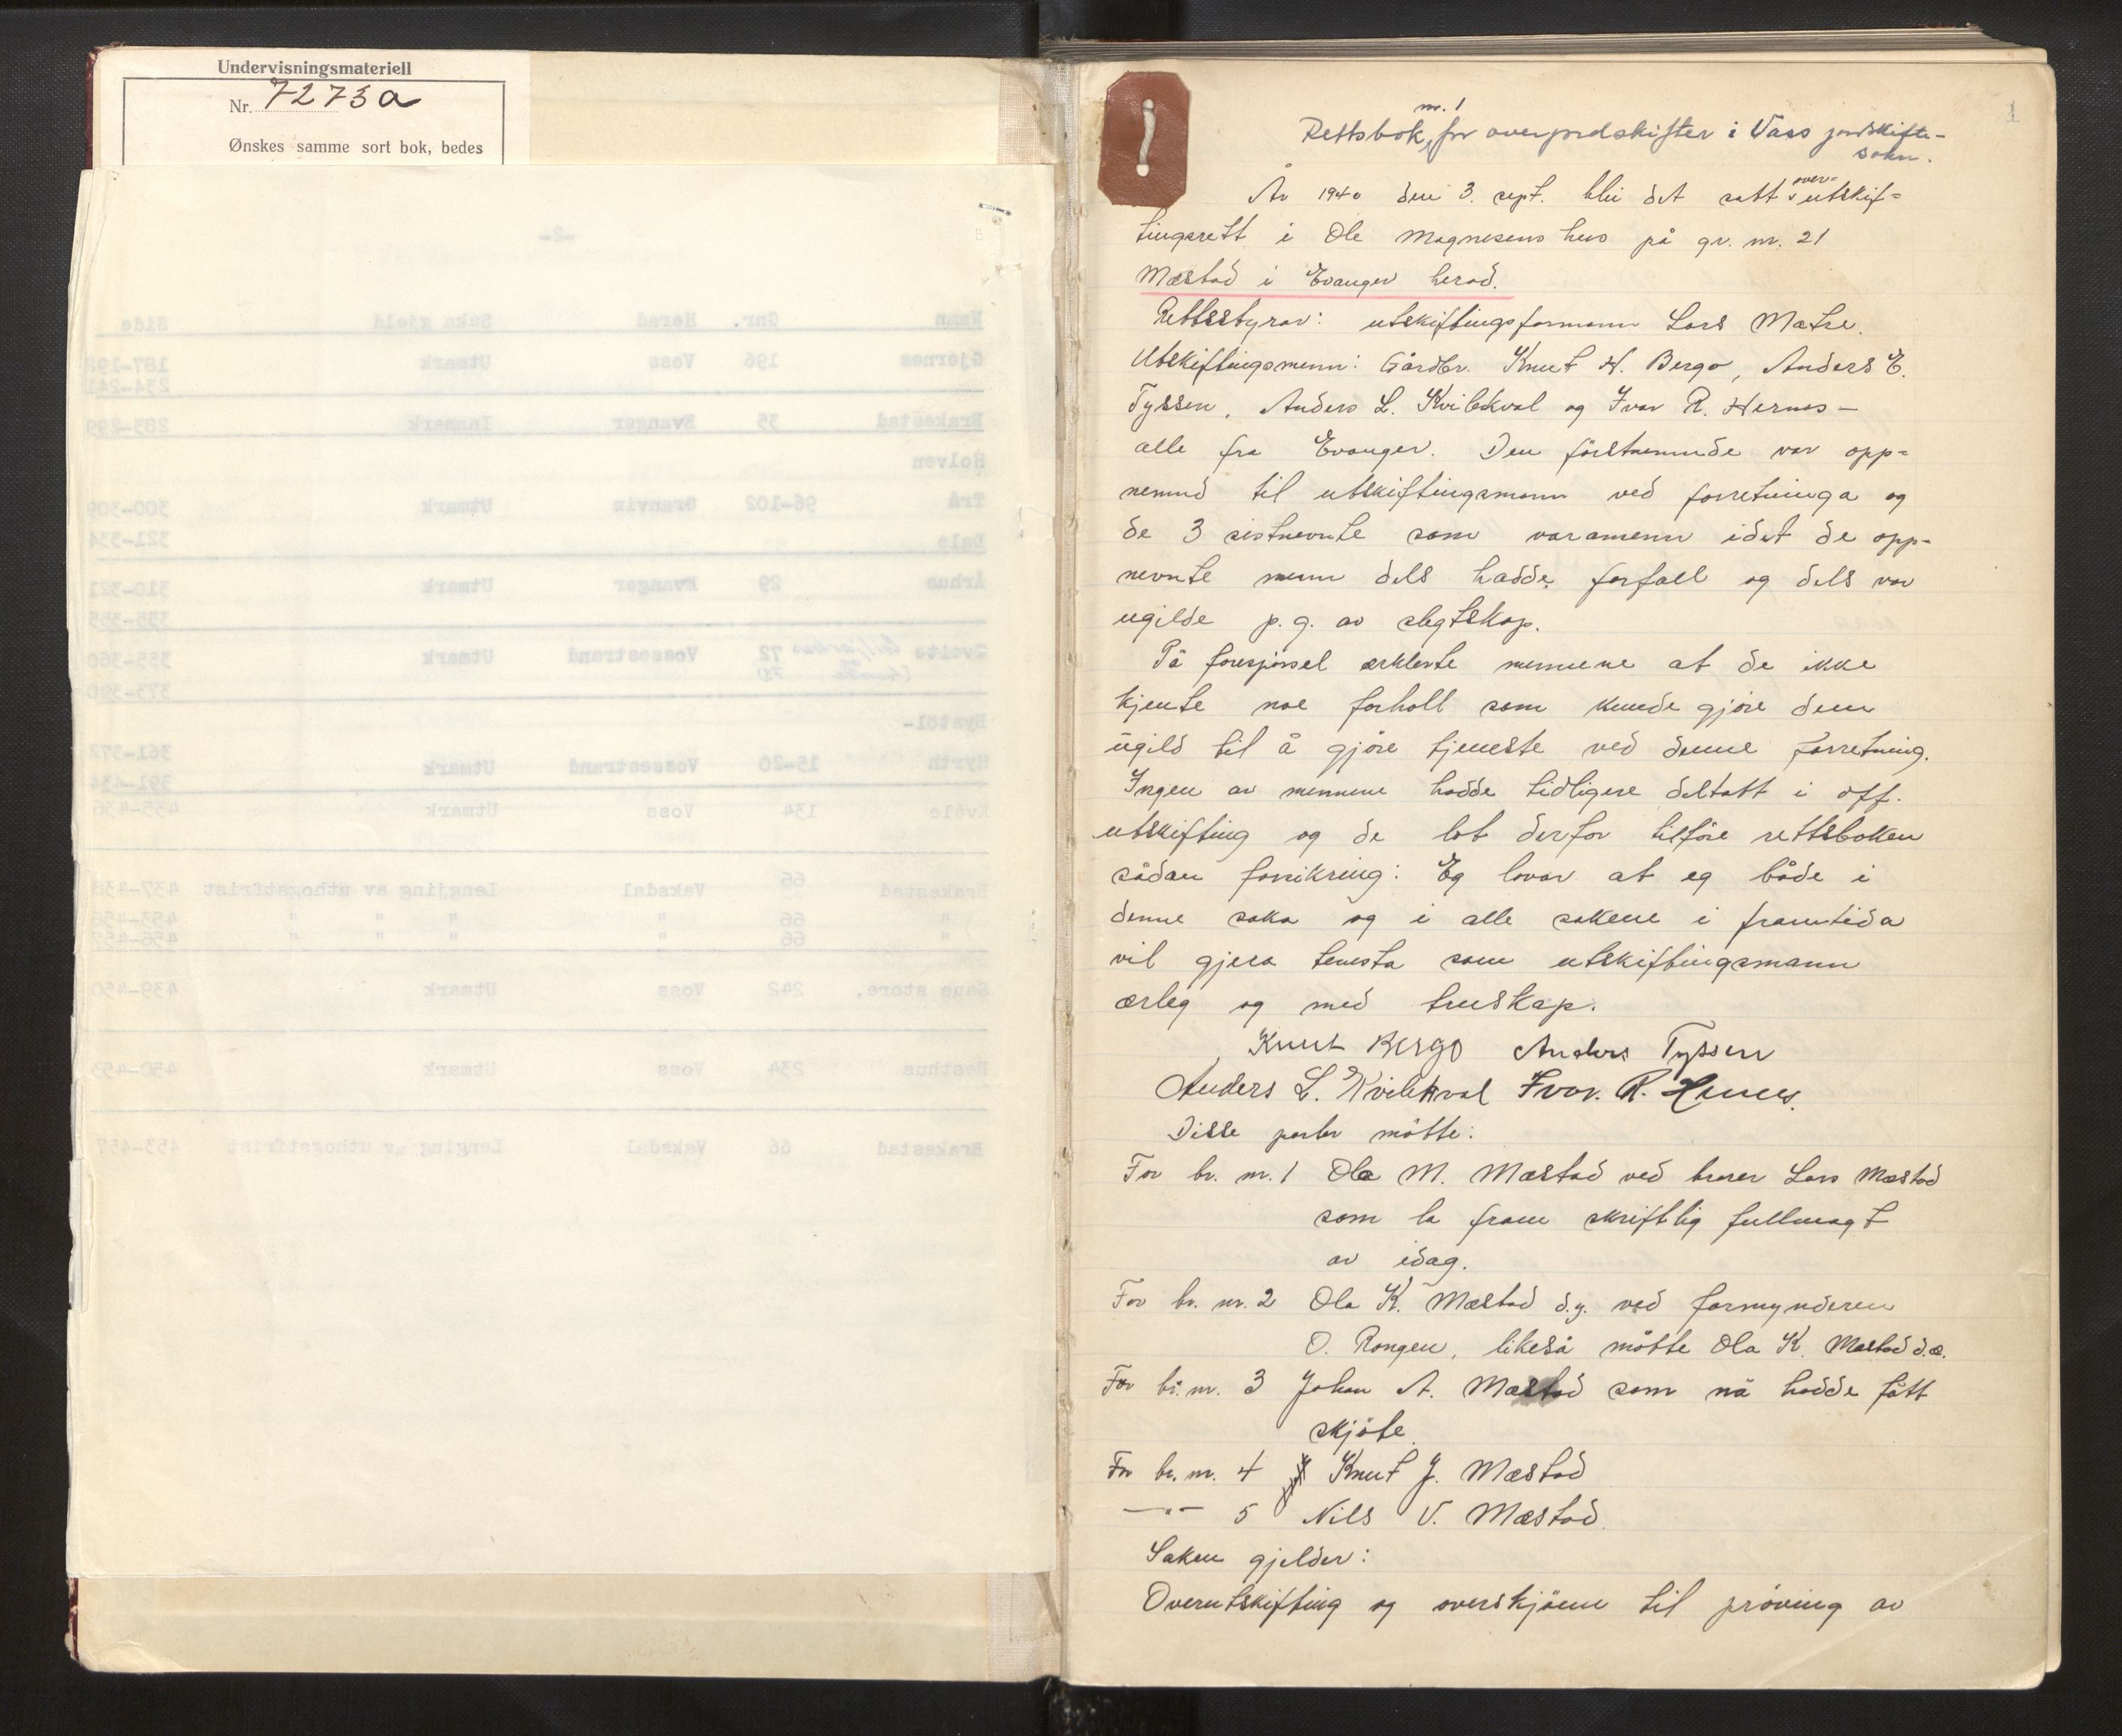 Undervisningsmateriell
Nr. 7273a
Ønskes samme sort bok, bedes
-2-
Namn Gnr. Herad Saka gjeld Side
Gjernes 196 Voss Utmark 187-192
234-241
Brakestad 35 Evanger Innmark 283-299
Holven
Trå 96-102 Granvin Utmark 300-309
Dale 321-334
Århus 29 Evanger Utmark 310-321
Tveite 72 Vossestrand Utmark 355-360
373-390
Bystøl-
Myrth 15-20 Vossestrand Utmark 361-372
391-434
Kvåle 134 Voss Utmark 435-436
Brakestad 66 Vaksdal Lenging av uthogstfrist 437-438
" 66 " " " " 453-456
" 66 " " " " 456-457
Saue store, 242 Voss Utmark 439-450
Rosthus 234 Voss Utmark 450-453
Brakestad 66 Vaksdal Lenging av uthogstfrist 453-457
1
nr. 1
Rettsbok for overjordskifter i Voss jordskifte-
sokn.
År 1940 den 3. sept. blei det satt over-utskif-
tingsrett i Ole Magnesens hus på gr. nr. 21
Mæstad i Evanger herad.
Rettsstyrar: utskiftingsformann Lars Matre.
Utskiftingsmenn: Gårdbr. Knut H. Bergo, Anders E.
Tyssen, Anders L. Kvilekval og Ivar R. Hernes –
alle fra Evanger. Den førstnemnde var opp-
nemnd til utskiftingsmann ved forretninga og
de 3 sistnevnte som varamenn idet de opp-
nevnte menn dels hadde forfall og dels var
ugilde p.g. av slegtskap.
På forespørsel erklerte mennene at de ikke
kjente noe forholl som kunde gjøre dem
ugild til å gjøre tjeneste ved denne forretning.
Ingen av mennene hadde tidligere deltatt i off.
utskifting og de lot derfor tilføre rettsboken
sådan forsikring: Eg lovar at eg både i
denne saka og i alle sakene i framtida
vil gjera tenesta som utskiftingsmann
ærleg og med truskap.
Knut Bergo Anders Tyssen
Anders L. Kvilekval Ivar. R. Hernes.
Disse parter møtte:
For br. nr. 1 Ola M. Mæstad ved broren Lars Mæstad
som la fram skriftlig fullmagt
av idag.
For br. nr. 2 Ola K. Mæstad d.y. ved formynderen
O. Rongen, likeså møtte Ola K. Mæstad d.e.
For br. nr. 3 Johan A. Mæstad som nå hadde fått
skjøte.
For br. nr. 4 Knut J. Mæstad
—"— 5 Nils V. Mæstad.
Saken gjelder:
Overutskifting og overskjønn til prøving av